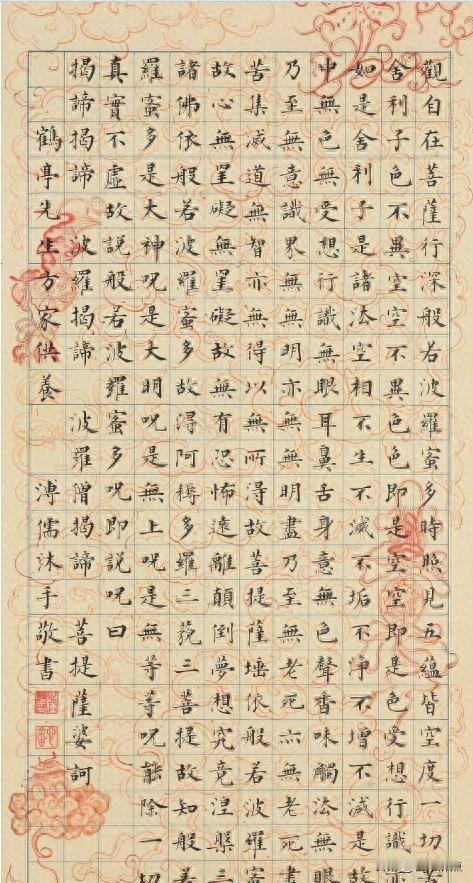 觀自在菩薩行深般若波羅蜜多時照見五蘊皆空度一切苦
舍利子色不異空空不異色色即是空空即是色受想行識亦
如是舍利子是諸法空相不生不滅不垢不淨不增不減是
中無色無受想行識無眼耳鼻舌身意無色聲香味觸法無眼
乃至無意識界無無明亦無無明盡乃至無老死亦無老死盡
苦集滅道無智亦無得以無所得故菩提薩埵依般若波羅蜜
故心無罣礙無罣礙故無有恐怖遠離顛倒夢想究竟涅槃三
諸佛依般若波羅蜜多故得阿耨多羅三藐三菩提故知般若
羅蜜多是大神咒是大明咒是無上咒是無等等咒能除一切
真實不虛故說般若波羅蜜多咒即說咒曰
揭諦揭諦 波羅揭諦 波羅僧揭諦 菩提薩婆訶
鶴亭先生方家供養 溥儒沐手敬書